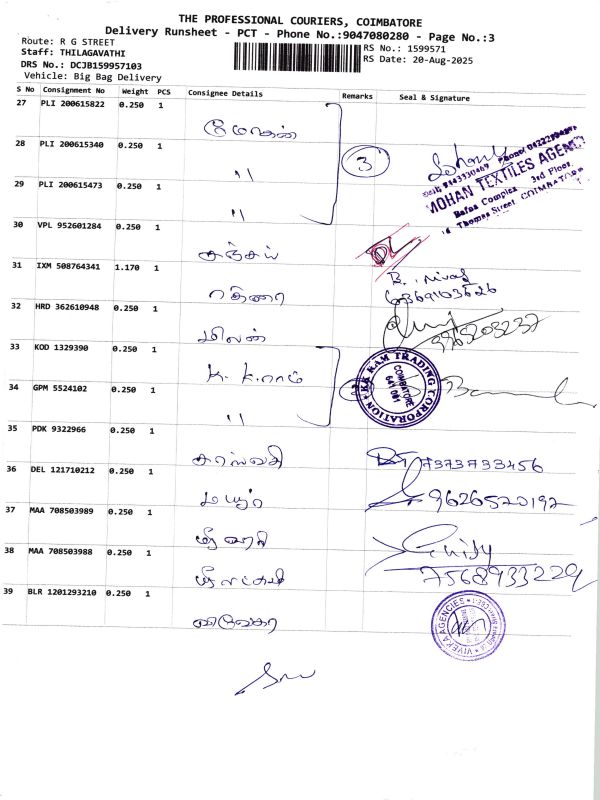 THE PROFESSIONAL COURIERS, COIMBATORE
Delivery Runsheet - PCT - Phone No.:9047080280 - Page No.:3
Route: R G STREET
RS No.: 1599571
Staff: THILAGAVATHI
RS Date: 20-Aug-2025
DRS No.: DCJB159957103
Vehicle: Big Bag Delivery
S No Consignment No Weight PCS Consignee Details Remarks Seal & Signature
27 PLI 200615822 0.250 1
மோகன்
28 PLI 200615340 0.250 1
" 3
MOHAN TEXTILES AGENCY
Bafna Complex 3rd Floor,
Thomas Street, COIMBATORE
29 PLI 200615473 0.250 1
"
30 VPL 952601284 0.250 1
சஞ்சய்
31 IXM 508764341 1.170 1
32 HRD 362610948 0.250 1
மிலன்
33 KOD 1329390 0.250 1
K. K.ராம்
KK RAM TRADING CORPORATION
COIMBATORE
641 001
34 GPM 5524102 0.250 1
"
35 PDK 9322966 0.250 1
சரஸ்வதி 7373733456
36 DEL 121710212 0.250 1
மயூர் 9626520192
37 MAA 708503989 0.250 1
38 MAA 708503988 0.250 1
7568933229
39 BLR 1201293210 0.250 1
விவேகா
VIVEKA AGENCIES